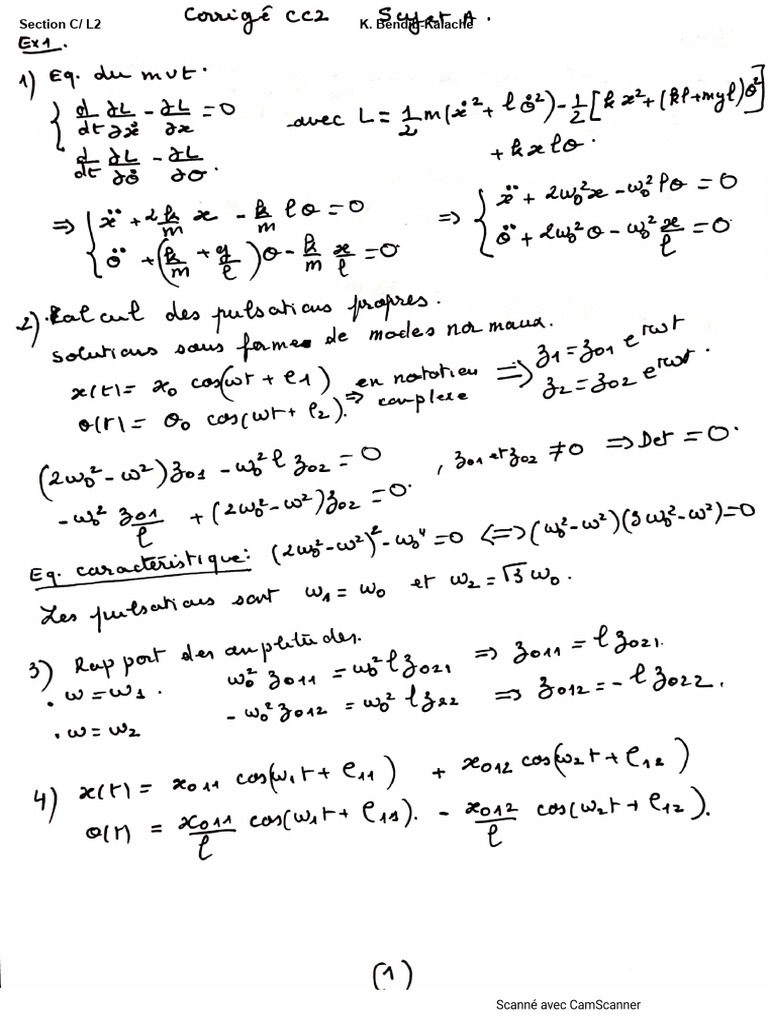 Section C/ L2
Corrigé CC2 Sujet A.
K. Bendib-Kalache
Ex1.
1) Eq. du mvt.
{ d/dt ∂L/∂ẋ - ∂L/∂x = 0
d/dt ∂L/∂θ̇ - ∂L/∂θ.
avec L = 1/2 m(ẋ² + lθ̇²) - 1/2 [kx² + (kl + mgl)θ²]
+ kxlθ.
⇒ { ẍ + 2k/m x - k/m lθ = 0
θ̈ + (k/m + g/l)θ - k/m x/l = 0
⇒ { ẍ + 2ω₀²x - ω₀²lθ = 0
θ̈ + 2ω₀²θ - ω₀² x/l = 0
2) Calcul des pulsations propres.
Solutions sous forme de modes normaux.
x(t) = x₀ cos(ωt + φ₁)
θ(t) = θ₀ cos(ωt + φ₂).
en notation ⇒ complexe
⇒ z₁ = z₀₁ e^iωt
z₂ = z₀₂ e^iωt.
(2ω₀² - ω²)z₀₁ - ω₀² l z₀₂ = 0
-ω₀² z₀₁/l + (2ω₀² - ω²)z₀₂ = 0.
, z₀₁ et z₀₂ ≠ 0 ⇒ Det = 0.
Eq. caractéristique: (2ω₀² - ω²)² - ω₀⁴ = 0 ⟺ (ω₀² - ω²)(3ω₀² - ω²) = 0
Les pulsations sont ω₁ = ω₀ et ω₂ = √3 ω₀.
3) Rapport des amplitudes.
. ω = ω₁. ω₀² z₀₁₁ = ω₀² l z₀₂₁ ⇒ z₀₁₁ = l z₀₂₁.
. ω = ω₂ -ω₀² z₀₁₂ = ω₀² l z₂₂ ⇒ z₀₁₂ = - l z₀₂₂.
4) x(t) = x₀₁₁ cos(ω₁t + φ₁₁) + x₀₁₂ cos(ω₂t + φ₁₂)
θ(t) = x₀₁₁/l cos(ω₁t + φ₁₁). - x₀₁₂/l cos(ω₂t + φ₁₂).
(1)
Scanné avec CamScanner